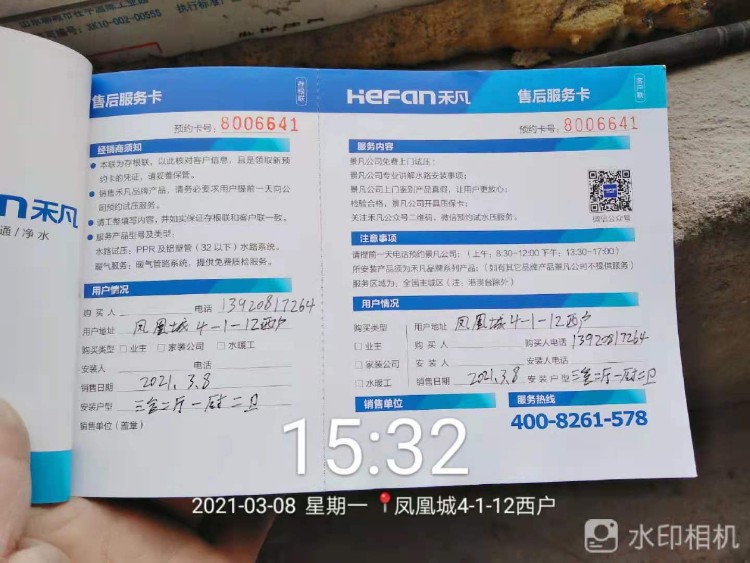 XK10-002-00555
执行标准
售后服务卡
存根联
预约卡号：8006641
经销商须知
本联为存根联，以此核对客户信息，且是领取新预
约卡的凭证，请妥善保管。
销售禾凡品牌产品，请务必要求用户提前一天向公
司预约试压服务。
请工整填写内容，并如实保证存根联和客户联一致。
服务产品型号及类型：
水路试压：PPR及铝塑管（32以下）水路系统。
暖气服务：暖气管路系统，提供免费质检服务。
用户情况
购买人 电话 13920817264
用户地址 凤凰城4-1-12西户
购买类型 业主 家装公司 水暖工
安装人 电话
销售日期 2021.3.8
安装户型 三室二厅一厨二卫
销售单位（盖章）
n禾凡
通/净水
HeFan禾凡 售后服务卡
客户联
预约卡号：8006641
服务内容
景凡公司免费上门试压：
景凡公司专业讲解水路安装事项；
景凡公司上门鉴别产品真假，让用户更放心；
检验合格，景凡公司开具质保卡；
关注禾凡公众号二维码，微信预约试水压服务。
微信公众号
注意事项
请提前一天电话预约景凡公司：（上午：8:30-12:00 下午：13:30-17:00）
所安装产品须为禾凡品牌系列产品；（如有其它品牌产品景凡公司不提供服务）
服务区域为：全国主城区（注：港澳台除外）
用户情况
购买类型 用户地址 凤凰城4-1-12西户
业主 购买人 购买人电话 13920817264
家装公司 安装人 安装人电话
水暖工 销售日期 2021.3.8 安装户型 三室二厅一厨二卫
销售单位 服务热线
400-8261-578
15:32
2021-03-08 星期一 凤凰城4-1-12西户
水印相机